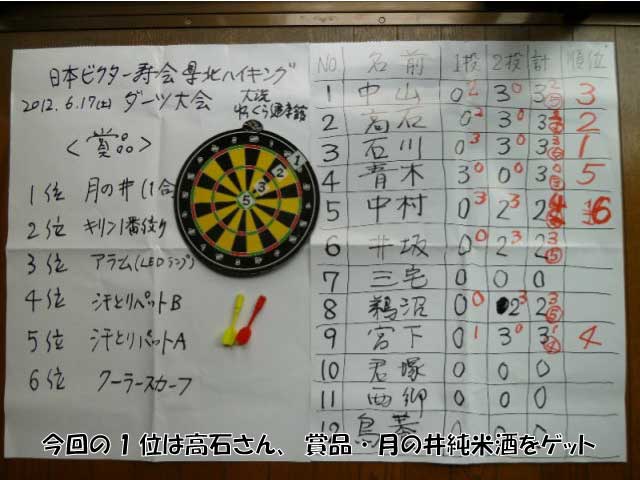 日本ビクター寿会県北ハイキング
2012.6.17(土) ダーツ大会
大洗
ゆっくら健康館
<賞品>
1位 月の井(1合
2位 キリン1番绞り
3位 アラーム(LEDランプ)
4位 汗とりパットB
5位 汗とりパットA
6位 クーラースカーフ
1 2 3 5
NO 名前 1投 2投 計 順位
1 中山 0 2 3 0 3 2 5 3
2 高石 0 2 3 0 3 2
3 石川 0 3 3 0 3 1
4 青木 3 0 0 0 3 5
5 中村 0 3 2 3 2 6
6 井坂 0 0 2 3 2 3 5
7 三宅 0 0 0
8 鵜沼 0 0 2 3 2 3 5
9 宮下 0 1 3 0 3 1 4 4
10 君塚 0 0 0
11 西郷 0 0 0
12 鳥養 0 0 0
今回の1位は高石さん、賞品・月の井純米酒をゲット